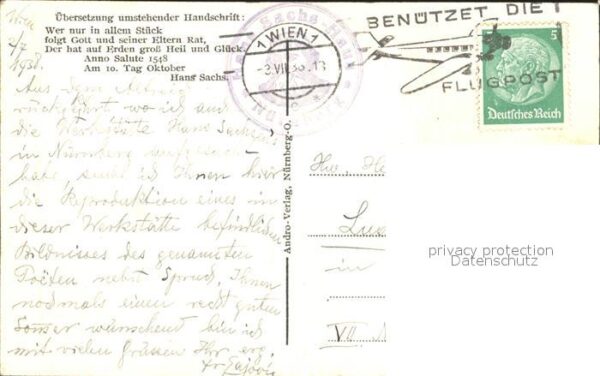 Übersetzung umstehender Handschrift:
Wer nur in allem Stück
folgt Gott und seiner Eltern Rat,
Der hat auf Erden groß Heil und Glück.
Anno Salute 1548
Am 10. Tag Oktober
Hans Sachs.
Wien
1938.
Aus dem
wo ich auch
die Werkstätte Hans Sachsens
in Nürnberg
habe, sende ich Ihnen hier
die Reproduktion eines in
dieser Werkstätte befindlichen
Bildnisses des genannten
Poëten nebst Spruch, Ihnen
nochmals einen recht guten
Sommer wünschend bin ich
mit vielen Grüssen Ihr
Hans-Sachs-
Nürnberg
1 WIEN 1
BENÜTZET DIE
FLUGPOST
5
Deutsches Reich
Andro-Verlag, Nürnberg-O.
in
VII
privacy protection
Datenschutz